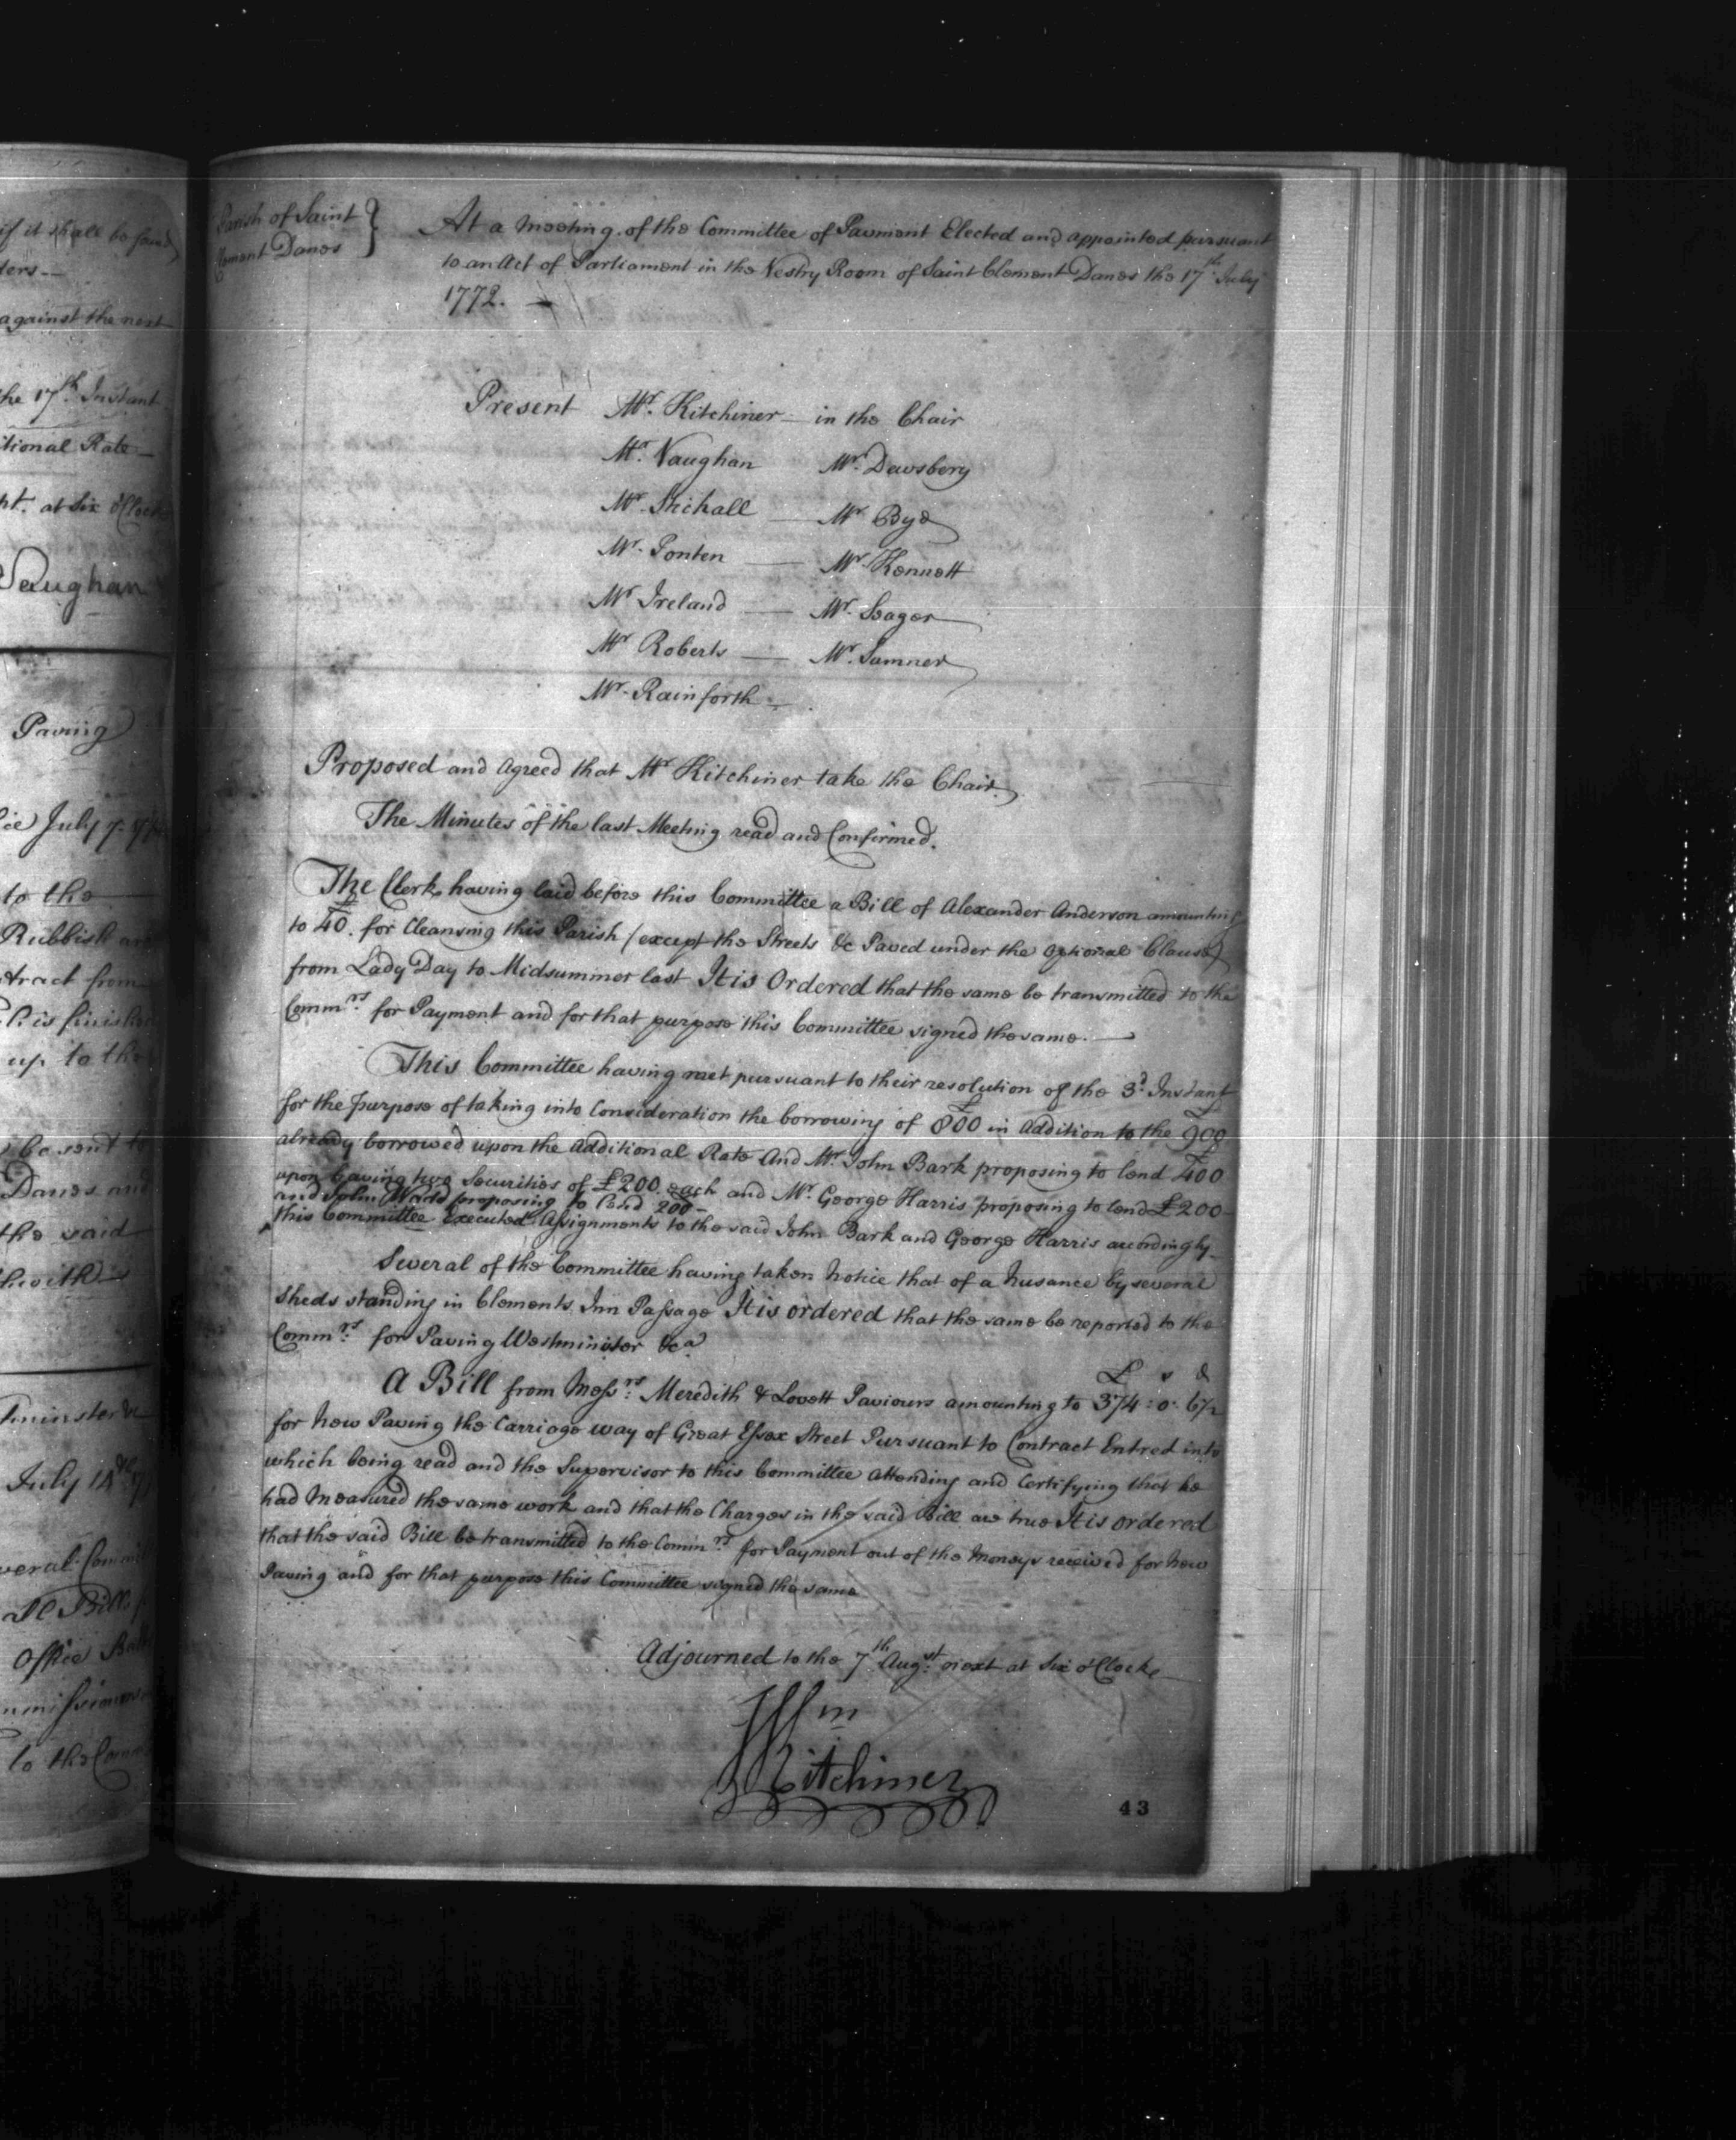 if it shall be found
ders—
against the next
the 17th Instant
itional Rate—
ht. at Six o'Clock
Vaughan
Paving
July 7.
to the
Rubbish are
tract from
is finished
up to the
be sent to
Danes and
the said
July 14th
Office
to the Comm
Parish of Saint
Clement Danes }
At a Meeting of the Committee of Pavment Elected and appointed pursuant
to an Act of Parliament in the Vestry Room of Saint Clement Danes the 17th July
1772.
Present Mr. Kitchiner — in the Chair
Mr. Vaughan Mr. Dewsbery
Mr. Shickall — Mr. Bye
Mr. Ponten — Mr. Kennett
Mr. Ireland — Mr. Seager
Mr. Roberts — Mr. Sumner
Mr. Rainforth —
Proposed and Agreed that Mr Kitchiner take the Chair.
The Minutes of the last Meeting read and Confirmed.
The Clerk having laid before this Committee a Bill of Alexander Anderson amounting
to £40. for Cleansing this Parish (except the Streets &c Paved under the Optional Clause)
from Lady Day to Midsummer last It is Ordered that the same be transmitted to the
Commrs. for Payment and for that purpose this Committee signed the same.—
This Committee having met pursuant to their resolution of the 3d. Instant
for the purpose of taking into Consideration the borrowing of £800 in Addition to the £900
already borrowed upon the Additional Rate And Mr. John Bark proposing to lend £400
upon having two Securities of £200 each and Mr. George Harris proposing to lend £200
and John Ward proposing to lend 200—
this Committee Executed Assignments to the said John Bark and George Harris accordingly
Several of the Committee having taken Notice that of a Nusance by several
Sheds standing in Clements Inn Passage It is ordered that the same be reported to the
Commrs. for Paving Westminster &ca.
£ s d
A Bill from Messrs. Meredith & Lovett Paviours amounting to 374 : 0 : 6½
for New Paving the Carriage way of Great Essex Street Pursuant to Contract Entred into
which being read and the Supervisor to this Committee Attending and Certifying that he
had Measured the same work and that the Charges in the said Bill are true It is ordered
that the said Bill be transmitted to the Commrs. for Payment out of the Moneys received for New
Paving and for that purpose this Committee signed the same
Adjourned to the 7th Augst. next at Six o'Clocke
Wm
Kitchiner
43